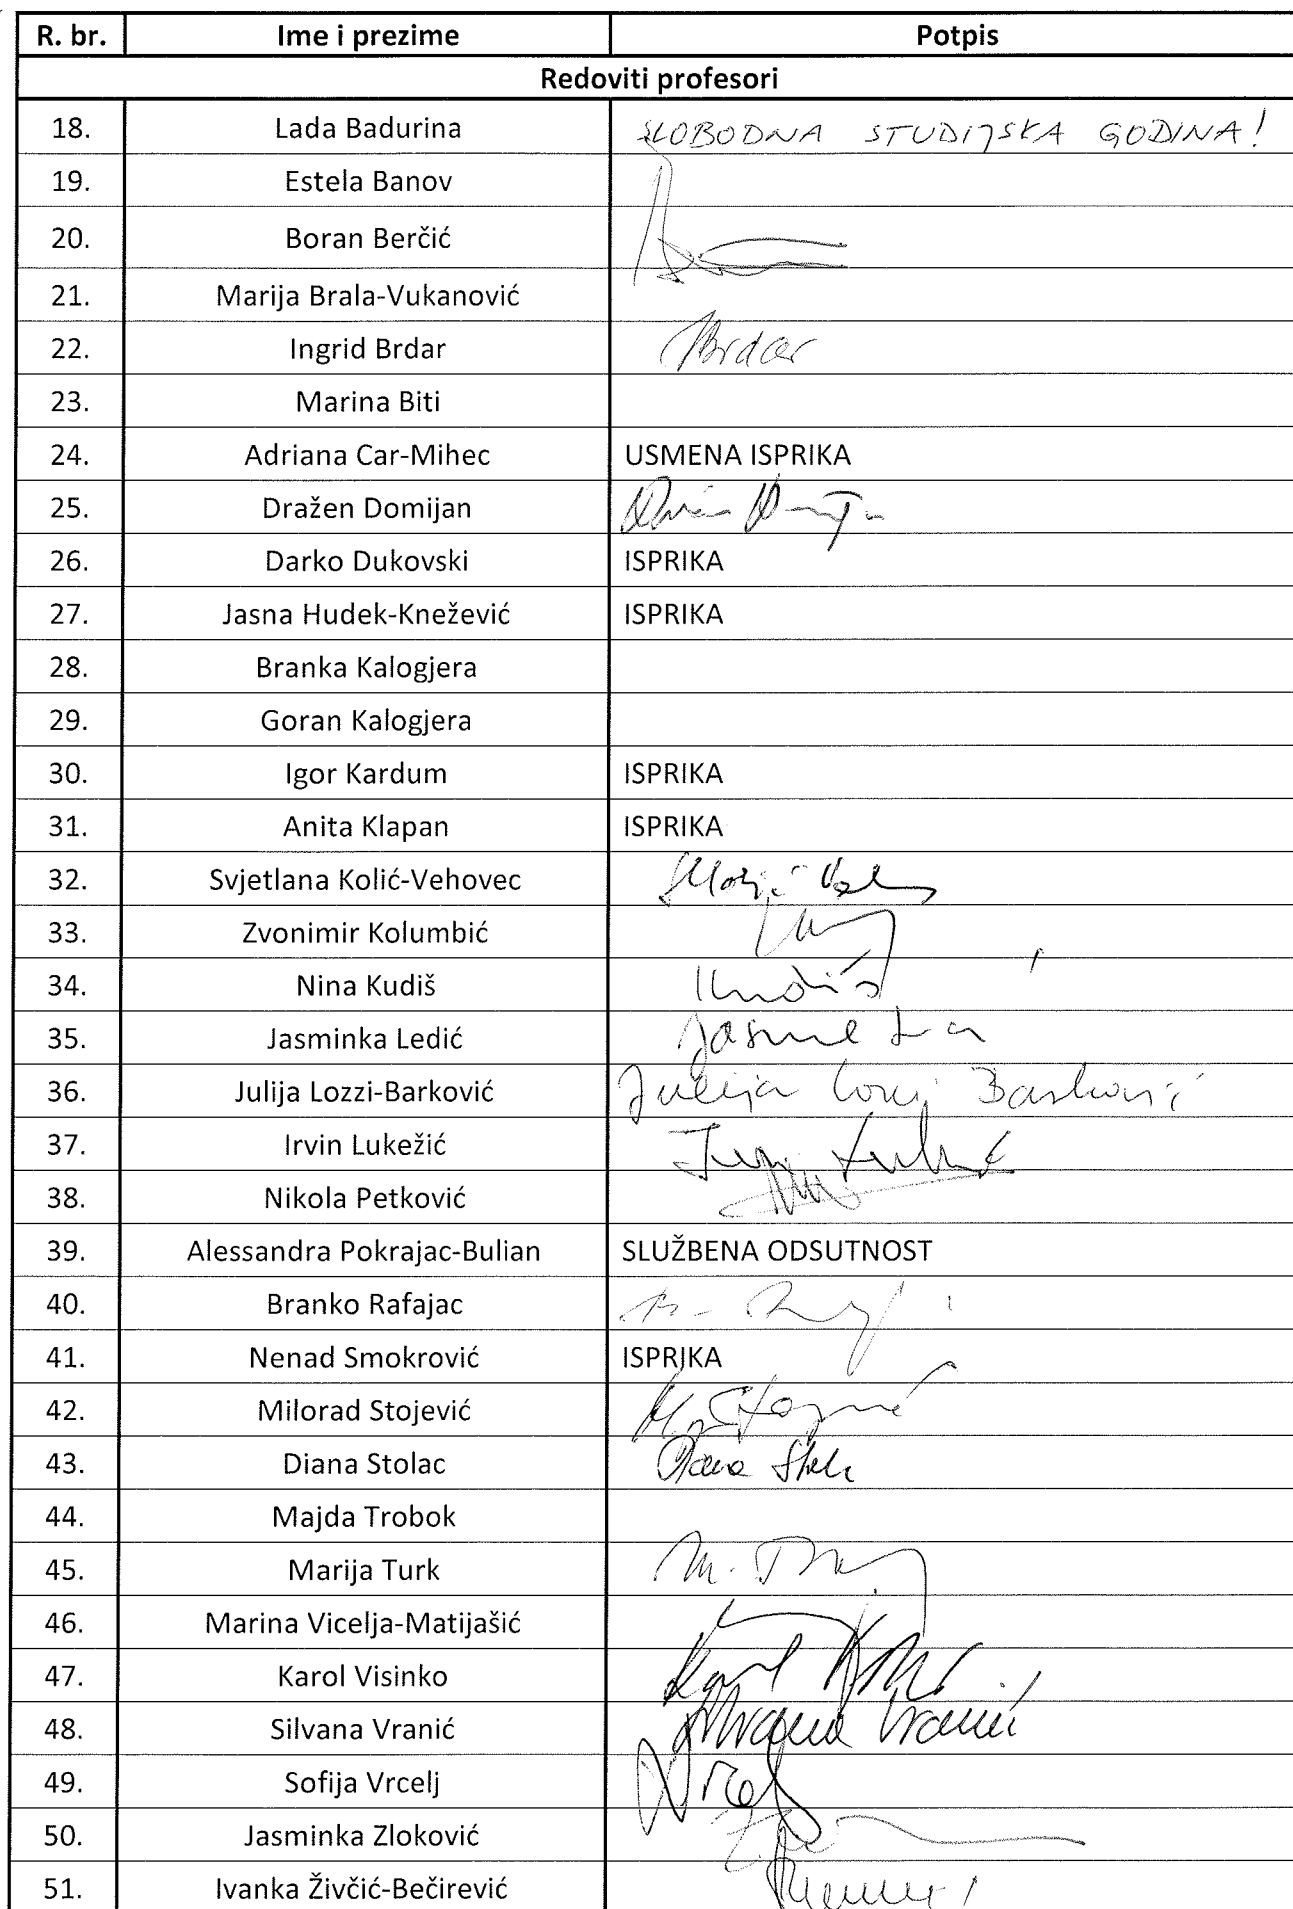 R. br. Ime i prezime Potpis
Redoviti profesori
18. Lada Badurina SLOBODNA STUDIJSKA GODINA!
19. Estela Banov
20. Boran Berčić
21. Marija Brala-Vukanović
22. Ingrid Brdar IBrdar
23. Marina Biti
24. Adriana Car-Mihec USMENA ISPRIKA
25. Dražen Domijan
26. Darko Dukovski ISPRIKA
27. Jasna Hudek-Knežević ISPRIKA
28. Branka Kalogjera
29. Goran Kalogjera
30. Igor Kardum ISPRIKA
31. Anita Klapan ISPRIKA
32. Svjetlana Kolić-Vehovec
33. Zvonimir Kolumbić
34. Nina Kudiš Kudiš
35. Jasminka Ledić
36. Julija Lozzi-Barković Julija Lozzi Barković
37. Irvin Lukežić
38. Nikola Petković
39. Alessandra Pokrajac-Bulian SLUŽBENA ODSUTNOST
40. Branko Rafajac
41. Nenad Smokrović ISPRIKA
42. Milorad Stojević
43. Diana Stolac
44. Majda Trobok
45. Marija Turk
46. Marina Vicelja-Matijašić
47. Karol Visinko
48. Silvana Vranić Silvana Vranić
49. Sofija Vrcelj
50. Jasminka Zloković
51. Ivanka Živčić-Bečirević